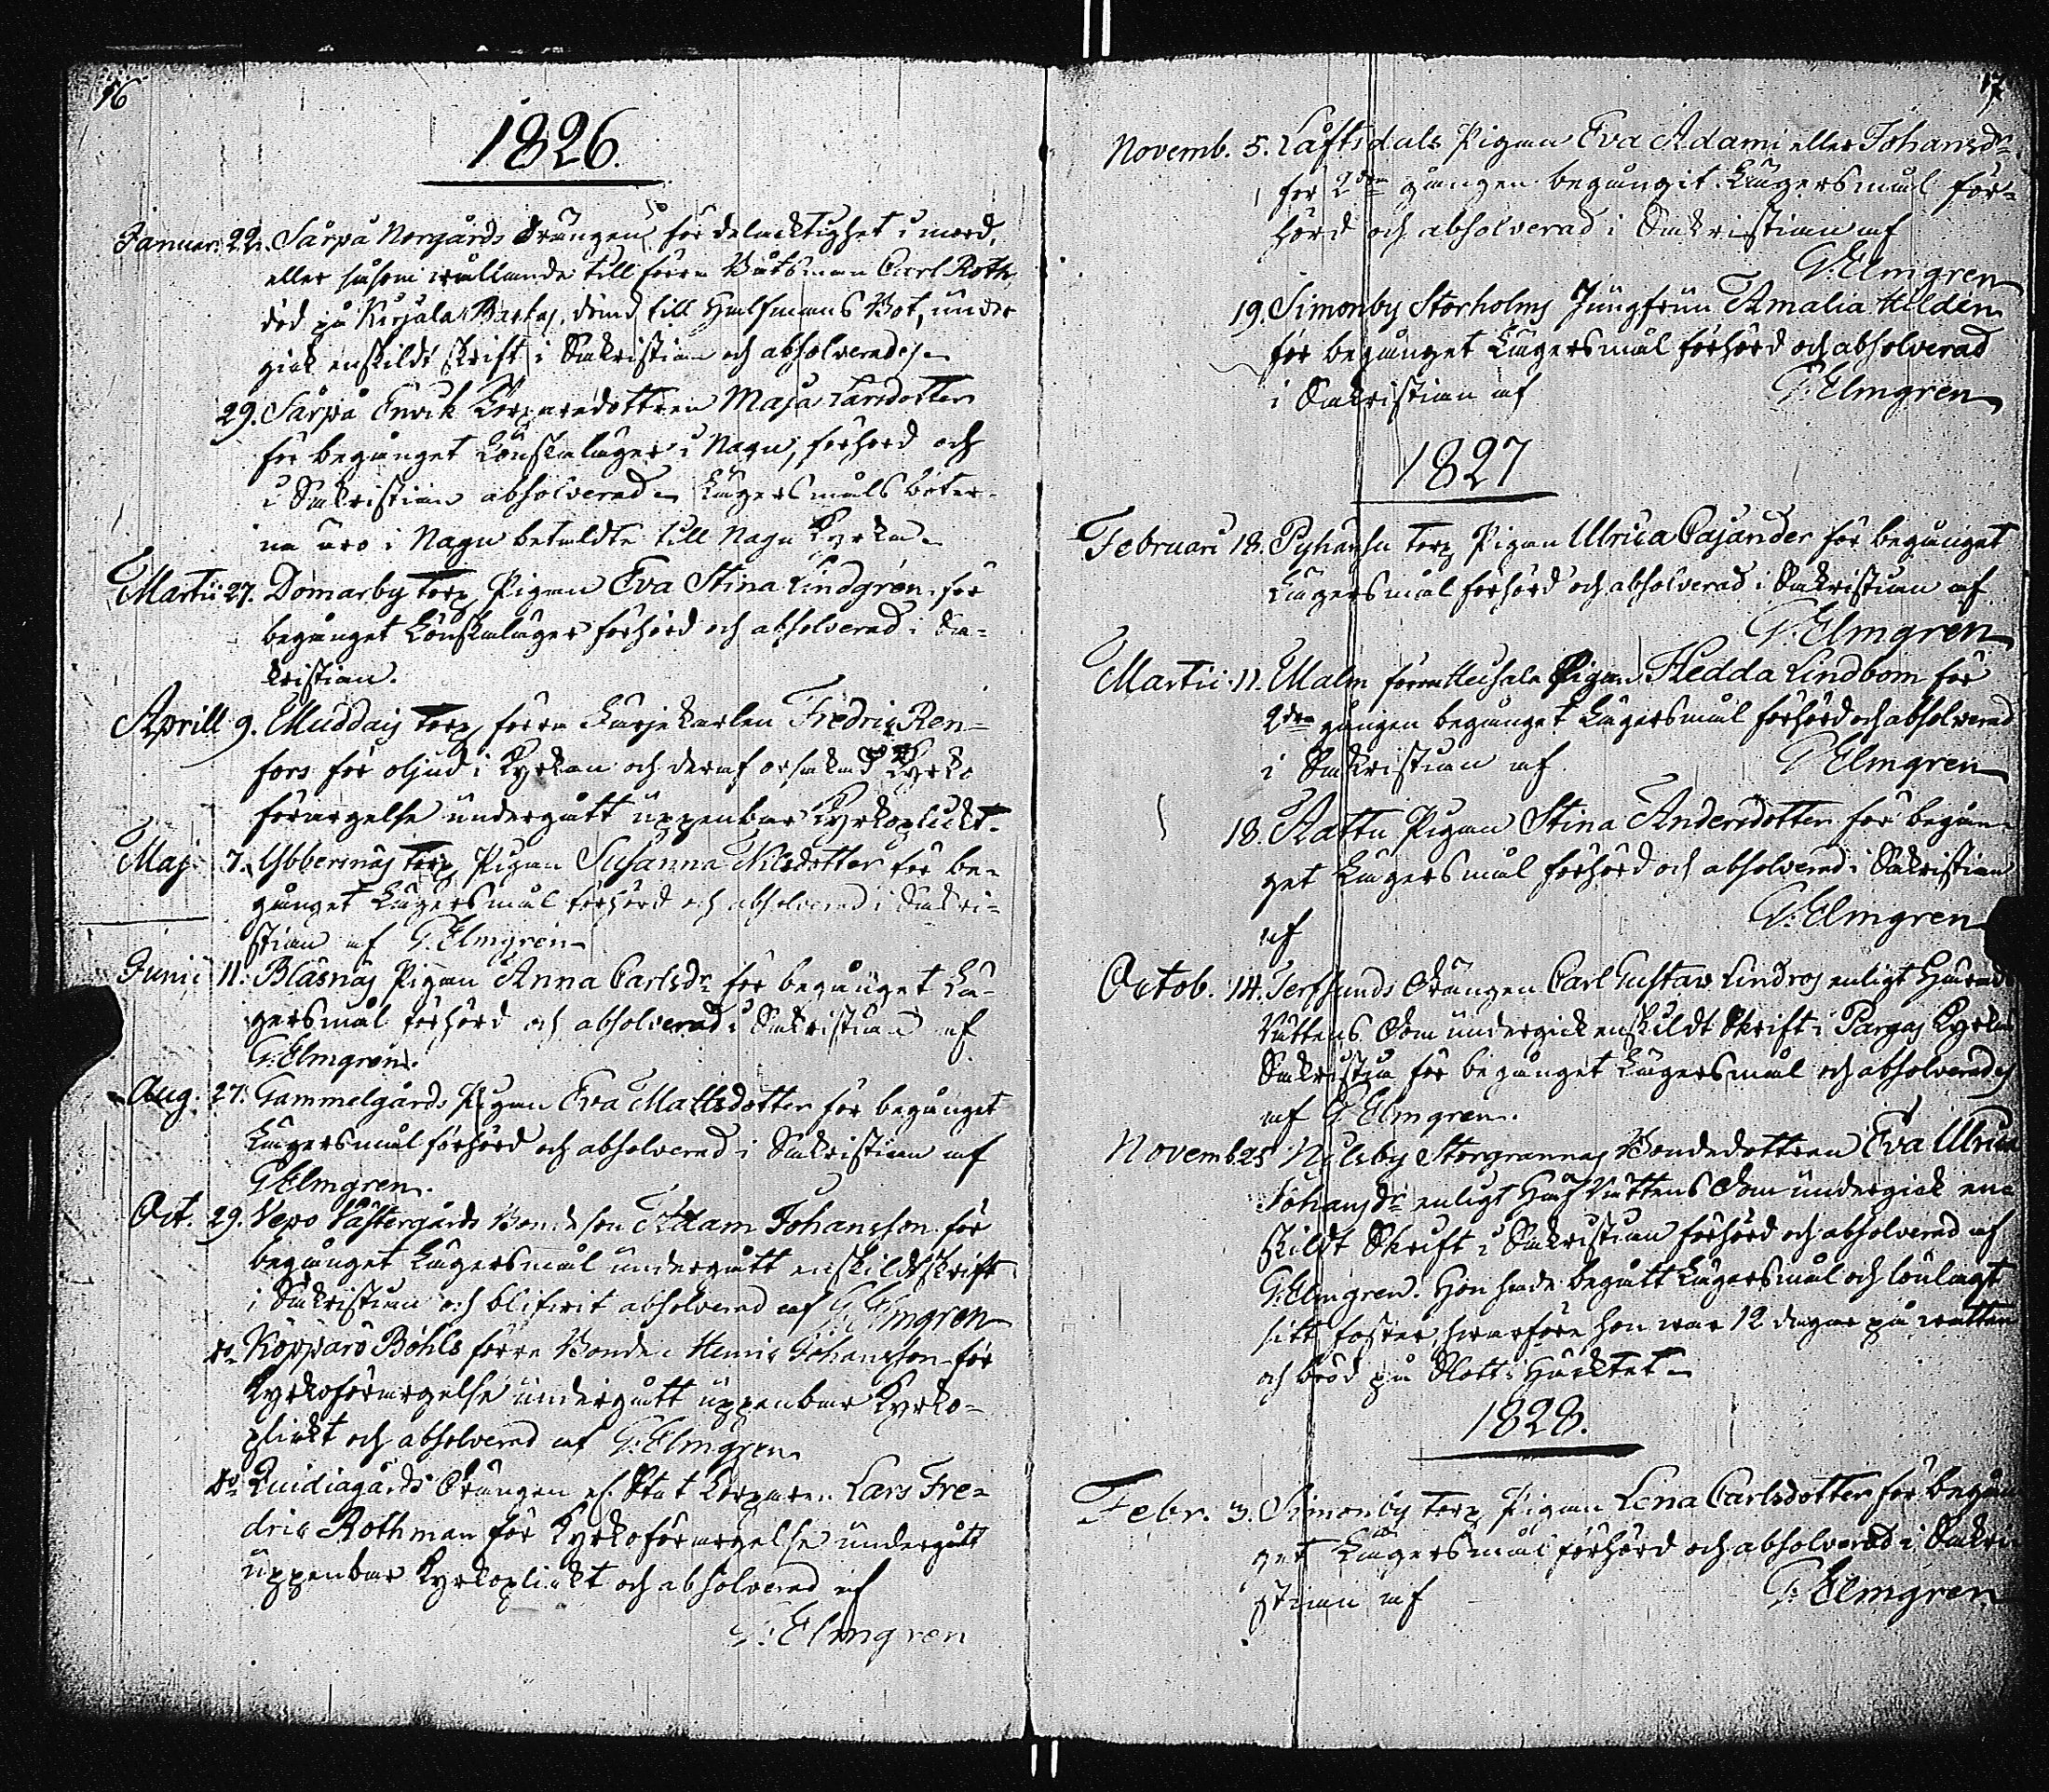 16
1826.
Januari 22. Sårpå Norgårds Drängen för delacktighet i mord,
eller såsom wållande till förra Båtsman Carl Roths
död på Kirjala Backas, dömd till Halfmans Bot, under
gick enskildt skrift i Sakristian och absolverades
29. Sårpå Ervik Torparedottren Maja Larsdotter
för begånget Lönskaläger i Nagu, förhörd och
i Sakristian absolverad. Lägersmåls böter-
na äro i Nagu betaldte till Nagu Kyrka
Martii 27. Domarby Torp Pigan Eva Stina Lindgren för
begånget Lönskaläger förhörd och absolverad i Sa-
kristian.
Aprill 9. Muddais Torp förra Karlen Fredric Ren-
fors för oljud i Kyrkan och deraf orsakad Kyrko
förargelse undergått uppenbar Kyrkoplickt.
Maj 7. Ybbernäs Torp Pigan Susanna Nilsdotter för be-
gånget Lägersmål förhörd och absolverad i Sakri-
stian af G. Elmgren
Junii 11. Bläsnäs Pigan Anna Carlsdr för begånget Lä-
gersmål förhörd och absolverad i Sakristian af
G. Elmgren.
Aug. 27. Gammelgårds Pigan Eva Mattsdotter för begånget
Lägersmål förhörd och absolverad i Sakristian af
G Elmgren.
Oct. 29. Vepo Västergårds Bondeson Adam Johansson för
begånget Lägersmål undergått enskildt skrift
i Sakristian och blifwit absolverad af G. Elmgren
do Kopparö Böhls förra Bonden Henric Johansson för
Kyrkoförargelse undergått uppenbar Kyrko-
plickt och absolverad af G. Elmgren
do Qvidiagårds Drängen Stat Torparen Lars Fre-
dric Rothman för Kyrkoförargelse undergått
uppenbar Kyrkoplickt och absolverad af
G. Elmgren
17
Novemb. 5. Låftsdals Pigan Eva Adami eller Johansdr
för 2dra gången begångit Lägersmål för-
hörd och absolverad i Sakristian af
G. Elmgren
19. Simonby Storholms Jungfrun Amalia Hilden
för begånget Lägersmål förhörd och absolverad
i Sakristian af G. Elmgren
1827
Februari 18. Pyhänsu Torp Pigan Ulrica Cajander för begånget
Lägersmål förhörd och absolverad i Sakristian af
G. Elmgren
Martii 11. Malm förra Pigan Hedda Lindbom för
2dra gången begånget Lägersmål förhörd och absolverad
i Sakristian af G Elmgren
18. Attu Pigan Stina Andersdotter för begån-
get Lägersmål förhörd och absolverad i Sakristian
af G. Elmgren
Octob. 14. Terfsunds Drängen Carl Gustav Lindros enligt Härads
Rättens Dom undergick enskildt Skrift i Pargas Kyrkas
Sakristia för begånget Lägersmål och absolverades
af G Elmgren.
Novemb. 25 Nilsby Storgrannas Bondedottren Eva Ulrica
Johansdr enligt HofRättens Dom undergick en-
skildt Skrift i Sakristian förhörd och absolverad af
G. Elmgren. Hon hade begått Lägersmål och lönlagt
sitt foster hwarföre hon war 12 dagar på watten
och bröd på Slotts Häcktet
1828.
Febr. 3. Simonby Torp Pigan Lena Carlsdotter för begån
get Lägersmål förhörd och absolverad i Sakri
stian af G. Elmgren